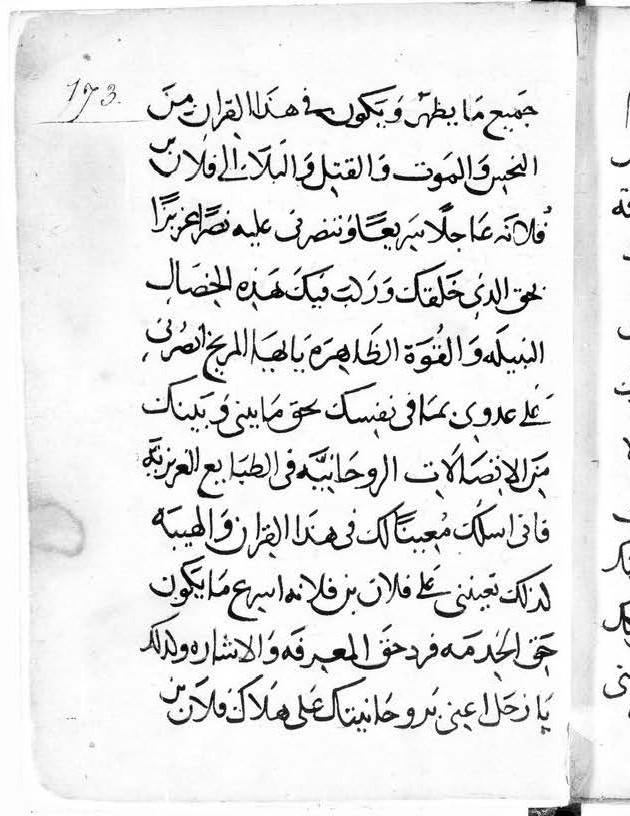 173.
جميع ما يظهر ويكون في هذا القران من
النحس والموت والقتل والبلاء الى فلان بن
فلانه عاجلا سريعا وتنصرني عليه نصرا عزيزا
بحق الذي خلقك وركب فيك هذه الخصال
النبيله والقوة الظاهره يا ايها المريخ انصرني
على عدوي بما في نفسك بحق ما بيني وبينك
من الاتصالات الروحانيه في الطبايع العزيزيه
فاني اسلك معينا لك في هذا القران والهيبه
لذلك تعينني على فلان بن فلانه اسرع ما يكون
حق الخدمه فرد حق المعرفه والاشاره ولذلك
يا زحل اعيني بروحانيتك على هلاك فلان بن